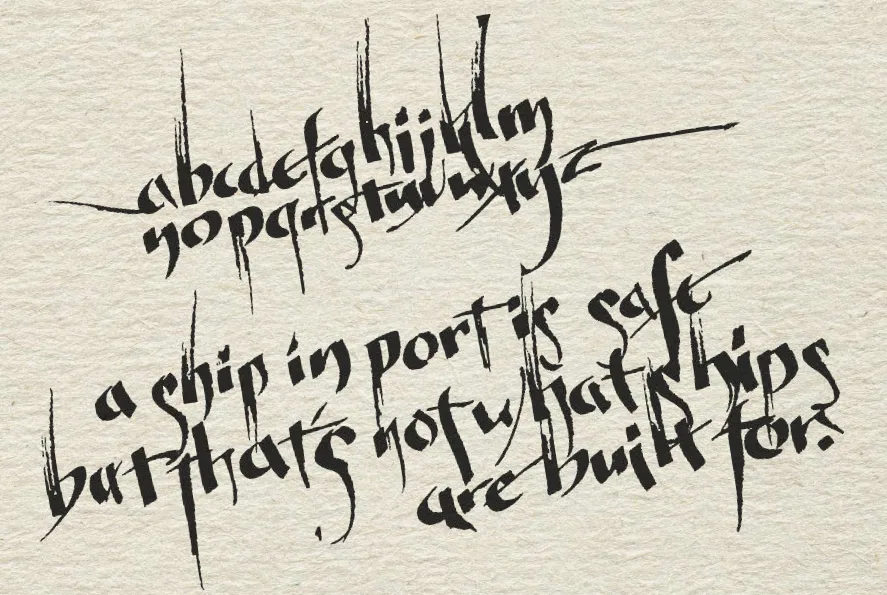 abcdefghijklm
nopqrstuvwxyz
a ship in port is safe
but that's not what ships
are built for.